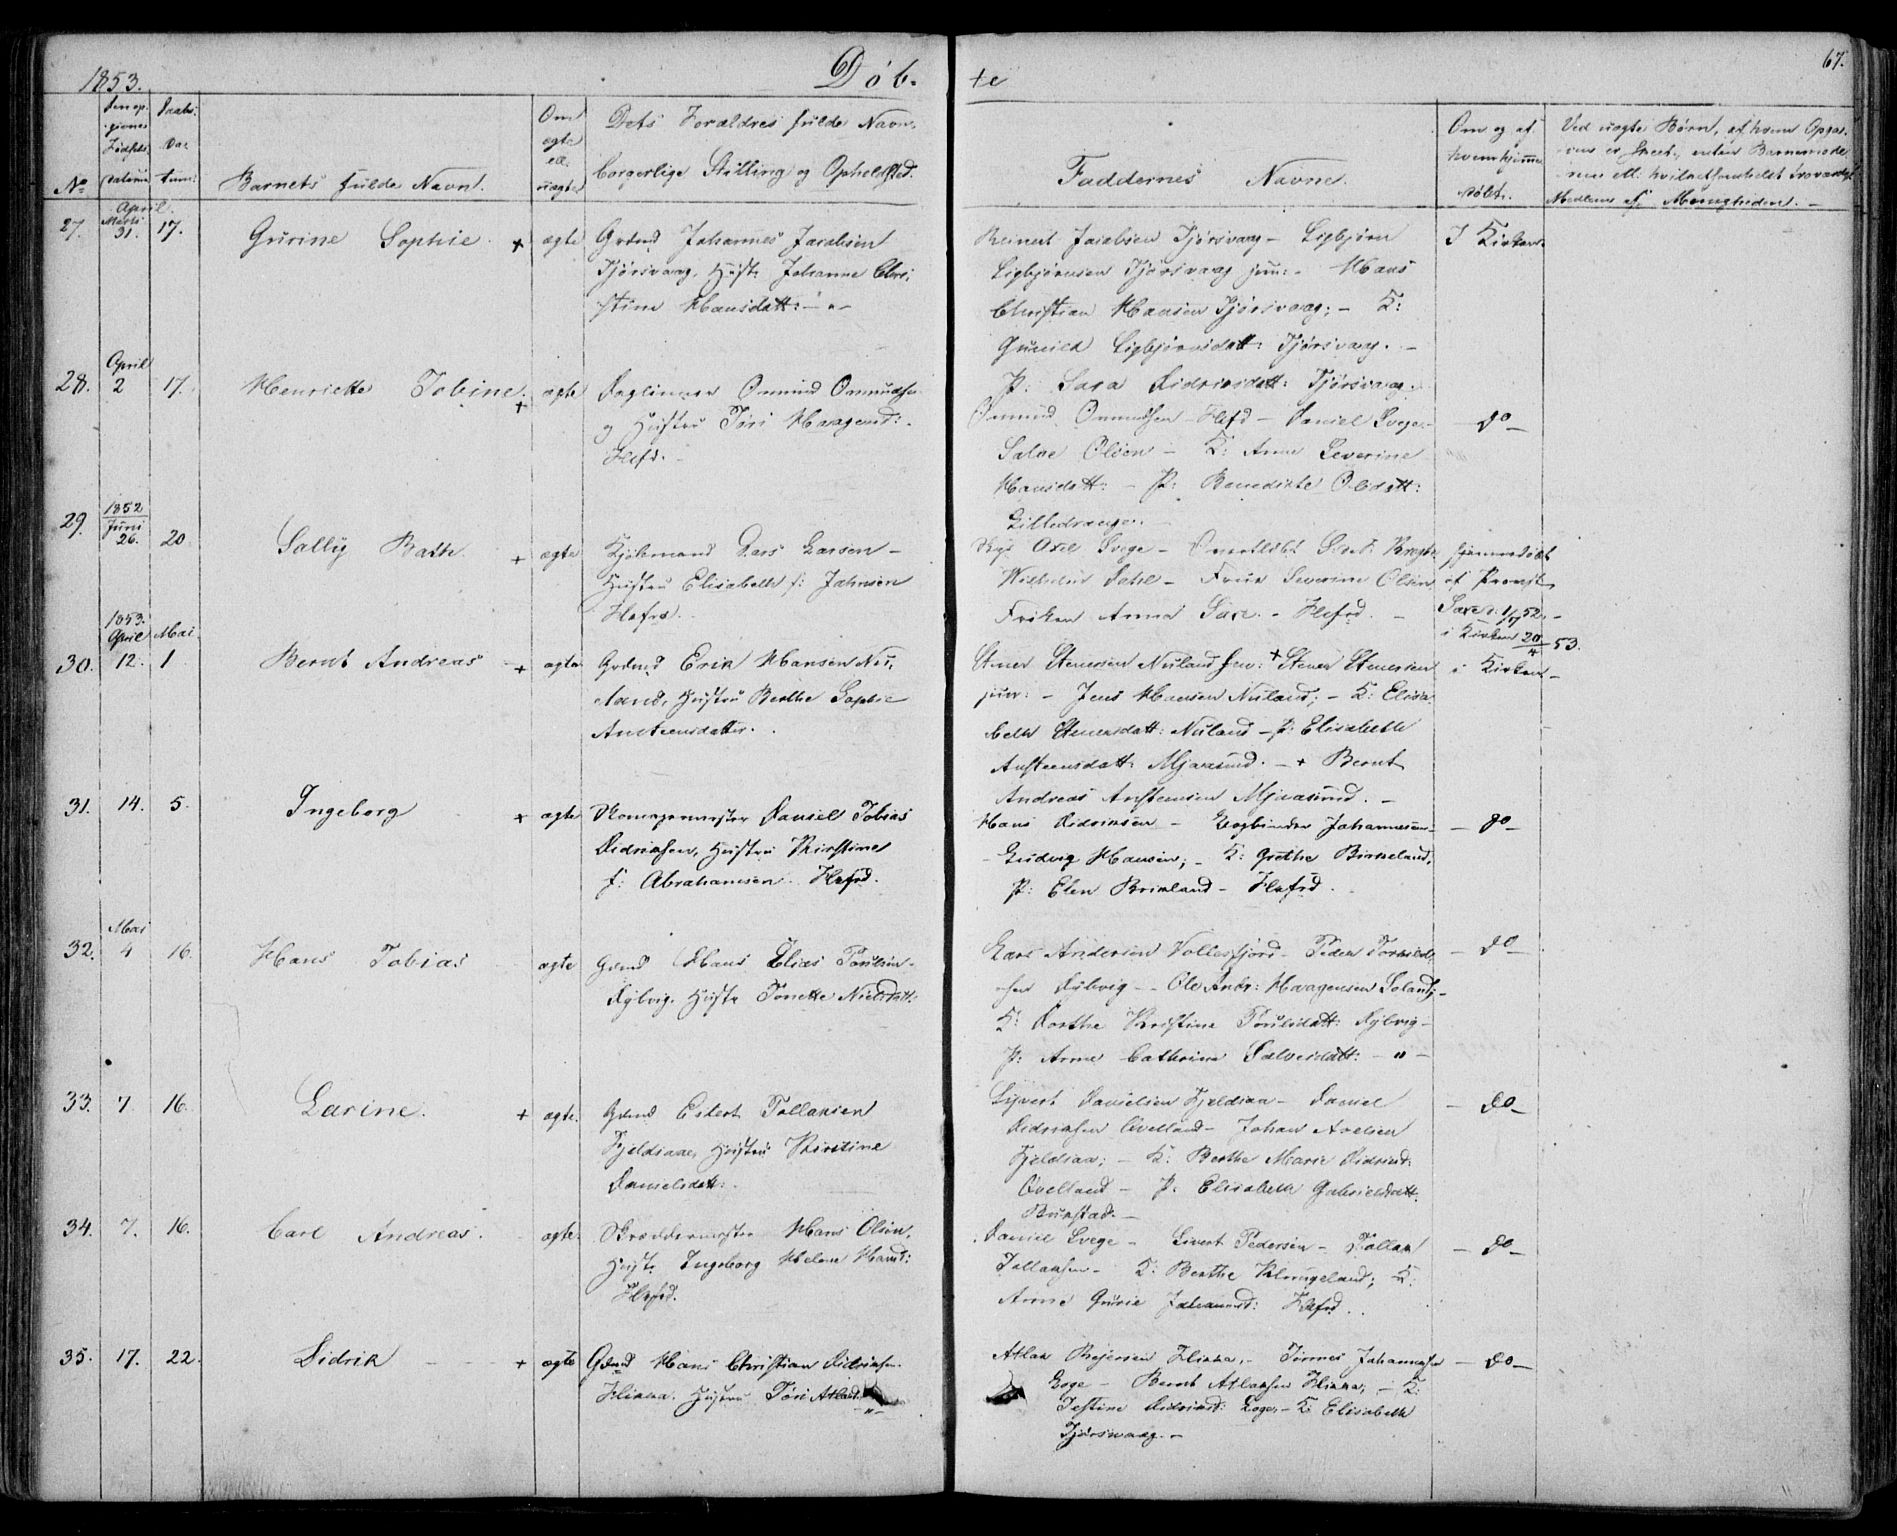 1853. Døb- te 67.
No
Den op-
givne
Fødsels
Datum
Daabs
Da-
tum:
Barnets fulde Navn.
Om
ægte
ell.
uægte
Dets Forældres fulde Navn,
borgerlige Stilling og Opholdsted.
Faddernes Navne.
Om og af
hvem hjemme
døbt.
Ved uægte Børn, af hvem Opgi-
ven er skeet, enten Barnemode-
ren ell. hvilketsomhelst troværdigt
Medlem af Menigheden. -
27. April Marts 31. 17. Gurine Sophie + ægte
Grdmd Johannes Jacobsen
Tjørsvaag, Hust. Johanne Chri-
stine Hansdatt: - " -
Reinert Jacobsen Tjørsvaag - Sigbjørn
Sigbjørnsen Tjørsvaag jun: - Hans
Christian Hansen Tjørsvaag; - K:
Gunild Sigbjørnsdatt: Tjørsvaag. -
P: Sara Didriksdatt: Tjørsvaag.
I Kirken.
28. April 2 17. Henriette Tobine. + ægte
Daglønner Omund Omundsen
og Hustru Tøri Haagensd:
Flefd. -
Omund Omundsen Flefd - Daniel Svege -
Salve Olsen - K: Anne Severine
Hansdatt: - P: Benedikte Olsdatt:
Lilledrange. -
- do -
29. 1852 Juni 26. 20 Sally Bathe. + ægte
Kjøbmand Lars Larsen -
Hustru Elisabeth f: Jahnsen
Flefd.
Axel Svege -
Wilhelm Dahl - Frue Severine Olsen,
Frøken Anna Saxe - Flefd. -
hjemmedøbt
af Provst
Saxe d. 1/7 52. -
i Kirken 20/4 53.
30. 1853. April 12. Mai 1 Bernt Andreas + ægte
Grdmd Erik Hansen Nu-
land, Hustru Berthe Sophie
Austensdatter.
Stener Stenersen Nuland sen: + Stener Stenersen
jun: - Jens Hansen Nuland; - K: Elisa-
beth Stenersdatt: Nuland - P: Elisabeth
Austensdatt: Mjaasund. - + Bernt
Andreas Austensen Mjaasund. -
i Kirken -
31. 14. 5. Ingeborg + ægte
Skomagermester Daniel Tobias
Didriksen, Hustru Kirstine
f: Abrahamsen Flefd.
Hans Didriksen - Bogbinder Johannesen -
- Ludvig Hansen; - K: Grethe Birkeland,
P: Elen Birkeland - Flefd.
- do -
32. Mai 4 16. Hans Tobias ægte
Grdmd Hans Elias Poulsen
Dybvig. Hustr. Tonette Nielsdatt:
Lars Andersen Vollesfjord - Peder Torkild-
sen Dybvig - Ole Andr: Haagensen Poland; -
K: Dorthe Kristine Poulsdatt: Dybvig -
P: Anne Cathrine Salvesdatt: - " -
- do -
33. 7. 16. Larine. + ægte.
Grdmd Eilert Tollaksen
Fjeldsaae, Hustru Kirstine
Danielsdatt:
Sigvert Danielsen Fjeldsaa - Daniel
Didriksen Øvelland - Johan Axelsen
Fjeldsaa; - K: Berthe Marie Didriksd:
Øvelland - P: Elisabeth Gabrielsdatt:
Buestad. -
- do -
34. 7. 16. Carl Andreas. ægte.
Skræddermester Hans Olsen,
Hust: Ingeborg Helene Hansd:
Flefd.
Daniel Svege - Sivert Pedersen - Tollak
Tollaksen - K: Berthe Klungeland; K:
Anne Gurie Johannsd: Flefd.
- do -
35. 17. 22. Didrik - - - + ægte
Grdmd Hans Christian Didriksen
Flikka. Hustru Tøri Atlaksd:
- " -
Atlak Reiersen Flikka, - Tønnes Johannesen
Loge - Bernt Atlaksen Flikka, - K:
Jestine Didriksd: Loge, - K: Elisabeth
Tjørsvaag. -
- do -